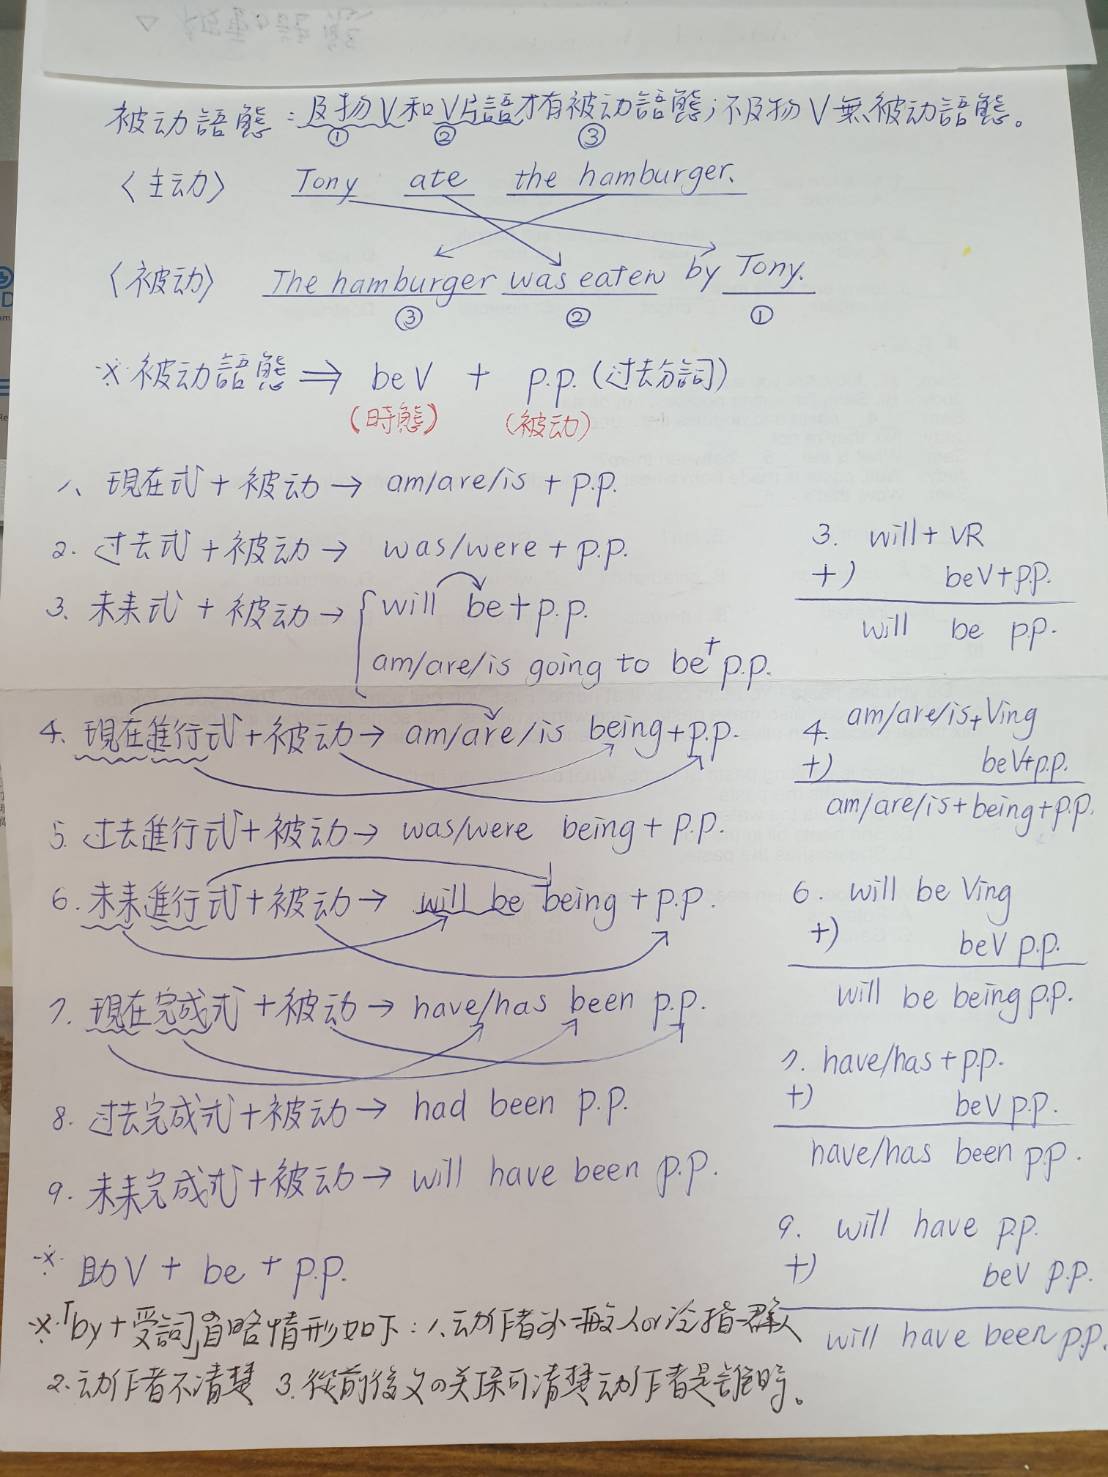 被动語態：及物V和V片語才有被动語態；不及物V無被动語態。
① ② ③
〈主动〉 Tony ate the hamburger.
〈被动〉 The hamburger was eaten by Tony.
③ ② ①
※被动語態⇒ beV + p.p.(过去分詞)
(時態) (被动)
1、現在式+被动→ am/are/is + p.p.
2. 过去式+被动→ was/were + p.p.
3. 未来式+被动→ will be + p.p.
am/are/is going to be + p.p.
3. will + VR
+) beV+p.p.
will be p.p.
4. 現在進行式+被动→ am/are/is being + p.p.
4. am/are/is + Ving
+) beV+p.p.
am/are/is + being + p.p.
5. 过去進行式+被动→ was/were being + p.p.
6. 未来進行式+被动→ will be being + p.p.
6. will be Ving
+) beV p.p.
will be being p.p.
7. 現在完成式+被动→ have/has been p.p.
7. have/has + p.p.
+) beV p.p.
have/has been p.p.
8. 过去完成式+被动→ had been p.p.
9. 未来完成式+被动→ will have been p.p.
9. will have p.p.
+) beV p.p.
will have been p.p.
※ 助V + be + p.p.
※「by+受詞」省略情形如下：1、动作者为一般人or泛指一群人
2. 动作者不清楚 3. 從前後文の关係可清楚动作者是誰時。